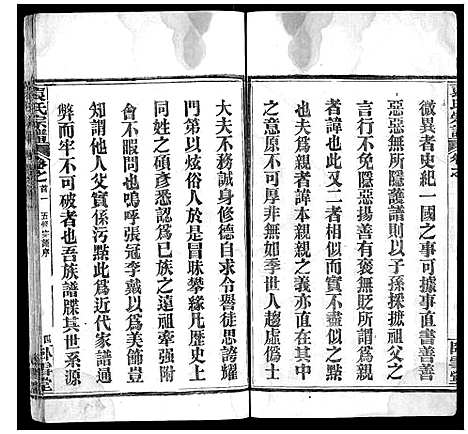 微異者史紀一國之事可據事直書善善
惡惡無所隱護譜則以子孫採摭祖父之
言行不免隱惡揚善有褒無貶所謂為親
者諱也此又二者相似而實不盡似之中
也夫為親者諱本親親之義亦直在其
之意原不可厚非無如季世人趨虛僞士
大夫不務誠身修德自求令譽徒思誇耀
門第以炫俗於是冒昧攀緣凡歷史上
同姓之碩彥悉認為已族之遠祖牽强附
會不暇問也嗚呼張冠李戴以為美飾豈
知謂他人父實係污點此為近代家譜通
弊而牢不可破者也吾族譜牒其世系源
袁氏宗譜 卷之首一 五修宗譜序 四 臥雪堂